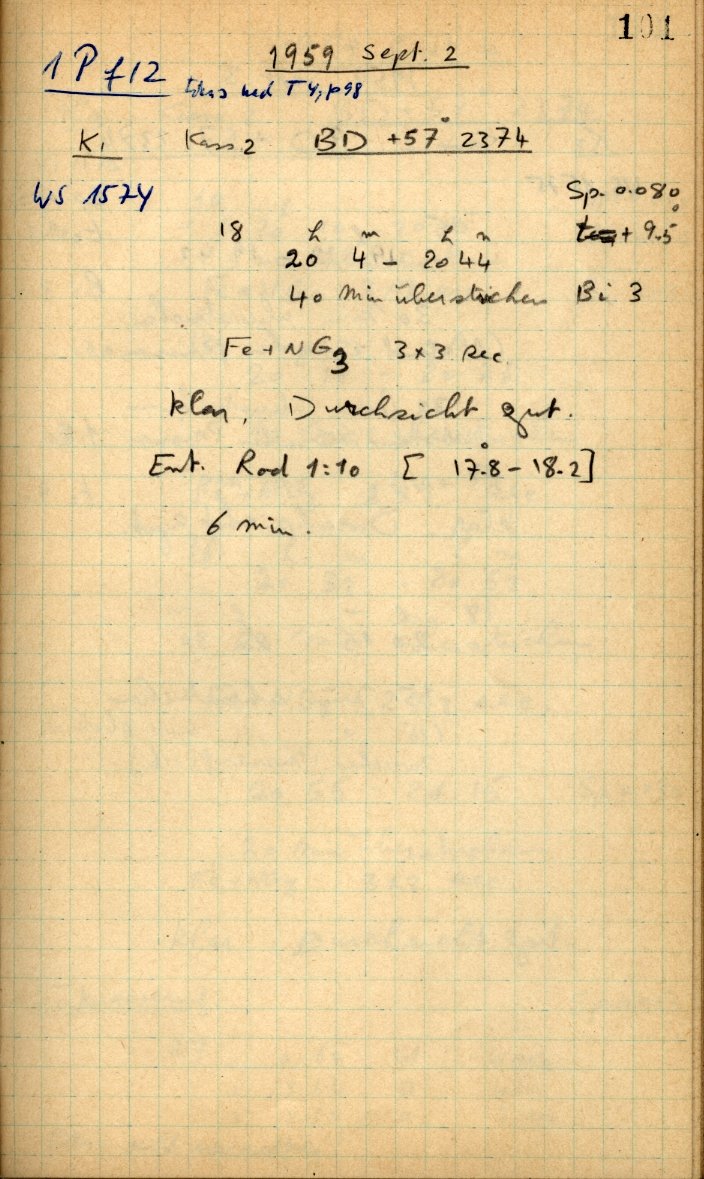 101
1959 Sept. 2
1 P f 12
T 4, p 98
K1 Kass 2 BD +57° 2374
WS 1574
Sp. 0.080
18 + 9.5°
20 h 4 m – 20 h 44 m
40 Min überstrichen Bi 3
Fe + NG3 3 x 3 sec.
klar, Durchsicht gut.
Ent. Rod 1:10 [ 17.°8 – 18.2]
6 min.